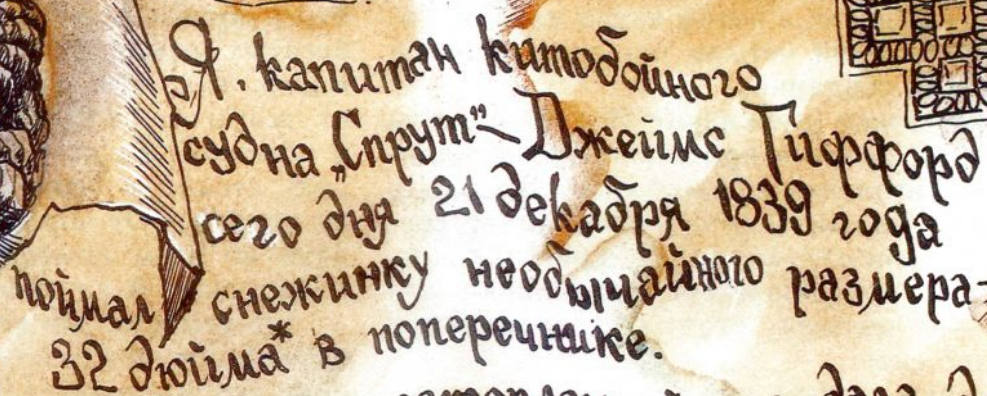 Я, капитан китобойного
судна „Спрут“ – Джеймс Гиффорд
сего дня 21 декабря 1839 года
поймал снежинку необычайного размера -
32 дюйма* в поперечнике.